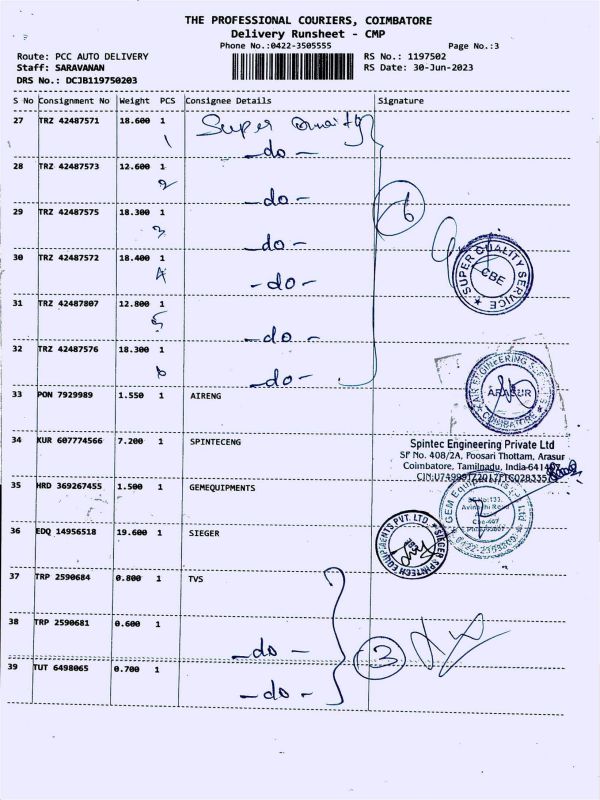 THE PROFESSIONAL COURIERS, COIMBATORE
Delivery Runsheet - CMP
Phone No.:0422-3505555 Page No.:3
Route: PCC AUTO DELIVERY RS No.: 1197502
Staff: SARAVANAN RS Date: 30-Jun-2023
DRS No.: DCJB119750203
S No Consignment No Weight PCS Consignee Details Signature
27 TRZ 42487571 18.600 1 Super Quality
1 -do-
28 TRZ 42487573 12.600 1
2 -do-
29 TRZ 42487575 18.300 1
3 -do-
6
30 TRZ 42487572 18.400 1
4 -do-
SUPER QUALITY SERVICE
CBE
31 TRZ 42487807 12.800 1
5 -do-
32 TRZ 42487576 18.300 1
6 -do-
33 PON 7929989 1.550 1 AIRENG
ARASUR
COIMBATORE
34 KUR 607774566 7.200 1 SPINTECENG
Spintec Engineering Private Ltd
SF No. 408/2A, Poosari Thottam, Arasur
Coimbatore, Tamilnadu, India-641407
35 HRD 369267455 1.500 1 GEMEQUIPMENTS
GEM Equipments Pvt Ltd
36 EDQ 14956518 19.600 1 SIEGER
SIEGER SPINTECH EQUIPMENTS PVT. LTD.
37 TRP 2590684 0.800 1 TVS
38 TRP 2590681 0.600 1
-do-
3
39 TUT 6498065 0.700 1
-do-